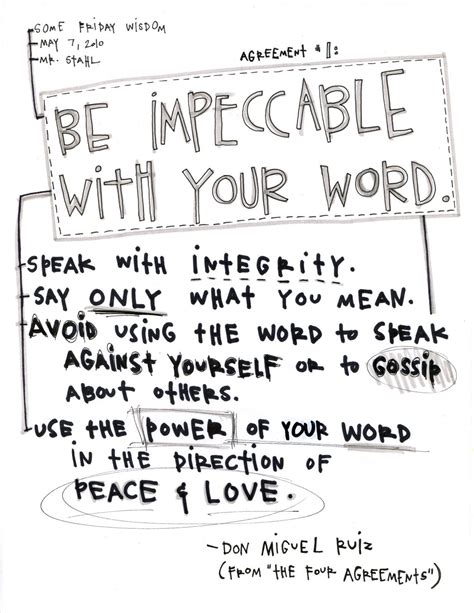 SOME FRIDAY WISDOM
MAY 7, 2010
MR. STAHL
AGREEMENT #1:
BE IMPECCABLE
WITH YOUR WORD.
SPEAK WITH INTEGRITY.
SAY ONLY WHAT YOU MEAN.
AVOID USING THE WORD TO SPEAK
AGAINST YOURSELF OR TO GOSSIP
ABOUT OTHERS.
USE THE POWER OF YOUR WORD
IN THE DIRECTION OF
PEACE & LOVE.
- DON MIGUEL RUIZ
(FROM "THE FOUR AGREEMENTS")